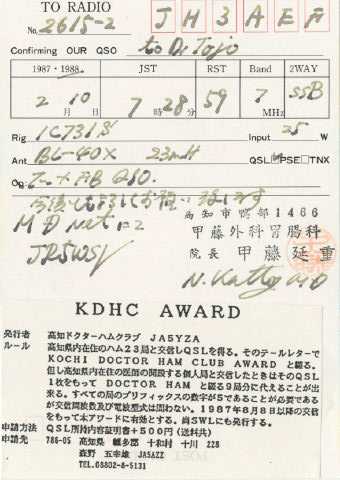 TO RADIO
No. 2615-2 JH3AEF
Confirming OUR QSO to Dr Tojo
1987・1988. JST RST Band 2WAY
2月10日 7時28分 59 7MHz SSB
Rig IC731S Input 25 W
Ant BC-40X 23mH QSL□PSE□TNX
Op. FB QSO.
今後ともよろしくお願い致します
M D net
JR5WSY
高知市鴨部1466
甲藤外科胃腸科
院長 甲藤延重
N. Katto MD
KDHC AWARD
発行者 高知ドクターハムクラブ JA5YZA
ルール 高知県内在住のハム23局と交信しQSLを得る。そのテールレターで
KOCHI DOCTOR HAM CLUB AWARD と綴る。
但し高知県内在住の医師の開設する個人局と交信したときはそのQSL
1枚をもって DOCTOR HAM と綴る9局分に代えることが出
来る。すべての局のプリフィックスの数字が5であることが必要である
が交信周波数及び電波型式は問わない。1987年8月8日以降の交信
をもって本アワードに有効とする。尚SWLにも発行する。
申請方法 QSL所持内容証明書+500円(送料共)
申請先 786-05 高知県 幡多郡 十和村 十川 228
森野 五幸雄 JA5AZZ
TEL.08802-8-5131